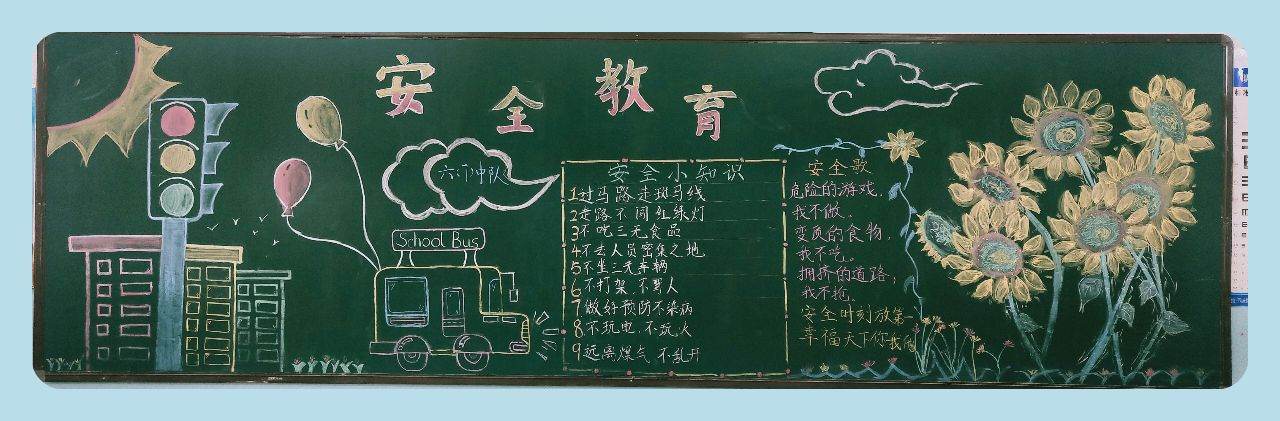 安全教育
六(1)中队
School Bus
安全小知识
1过马路走斑马线
2走路不闯红绿灯
3不吃三无食品
4不去人员密集之地
5不坐三无车辆
6不打架 不骂人
7做好预防不染病
8不玩电,不玩火
9远离煤气 不乱开
安全歌
危险的游戏,
我不做、
变质的食物,
我不吃。
拥挤的道路,
我不抢、
安全时刻放第一
幸福天下你我他